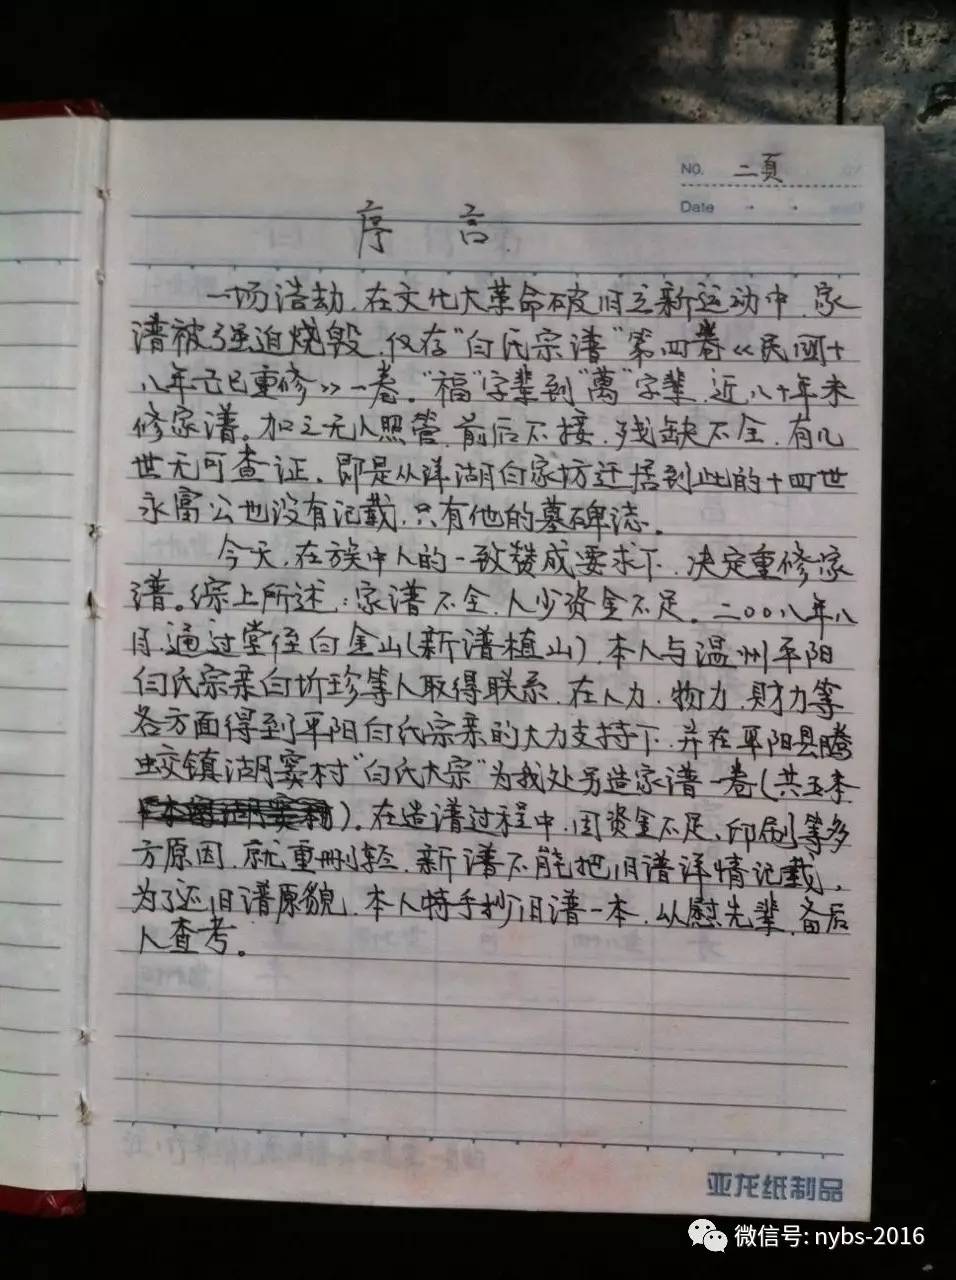 NO. 二頁
Date
序言
一场浩劫,在文化大革命破旧立新运动中,家
谱被强迫烧毁,仅存"白氏宗谱"第四卷《民国十
八年己巳重修》一卷。"福"字辈到"萬"字辈,近八十年未
修家谱。加之无人照管,前后不接,残缺不全,有几
世无可查证。即是从洋湖白家坊迁居到此的十四世
永富公也没有记载,只有他的墓碑誌。
今天,在族中人的一致赞成要求下,决定重修家
谱。综上所述:家谱不全,人少资金不足。二00八年八
月,通过堂侄白金山(新谱植山),本人与温州平阳
白氏宗亲白圻珍等人取得联系,在人力,物力,财力等
各方面得到平阳白氏宗亲的大力支持下,并在平阳县腾
蛟镇湖窦村"白氏大宗"为我处另造家谱一卷(共五本
)。在造谱过程中,因资金不足,印刷等多
方原因,就重删轻,新谱不能把旧谱详情记载,
为了还旧谱原貌,本人特手抄旧谱一本,以慰先辈,备后
人查考。
亚龙纸制品
微信号: nybs-2016